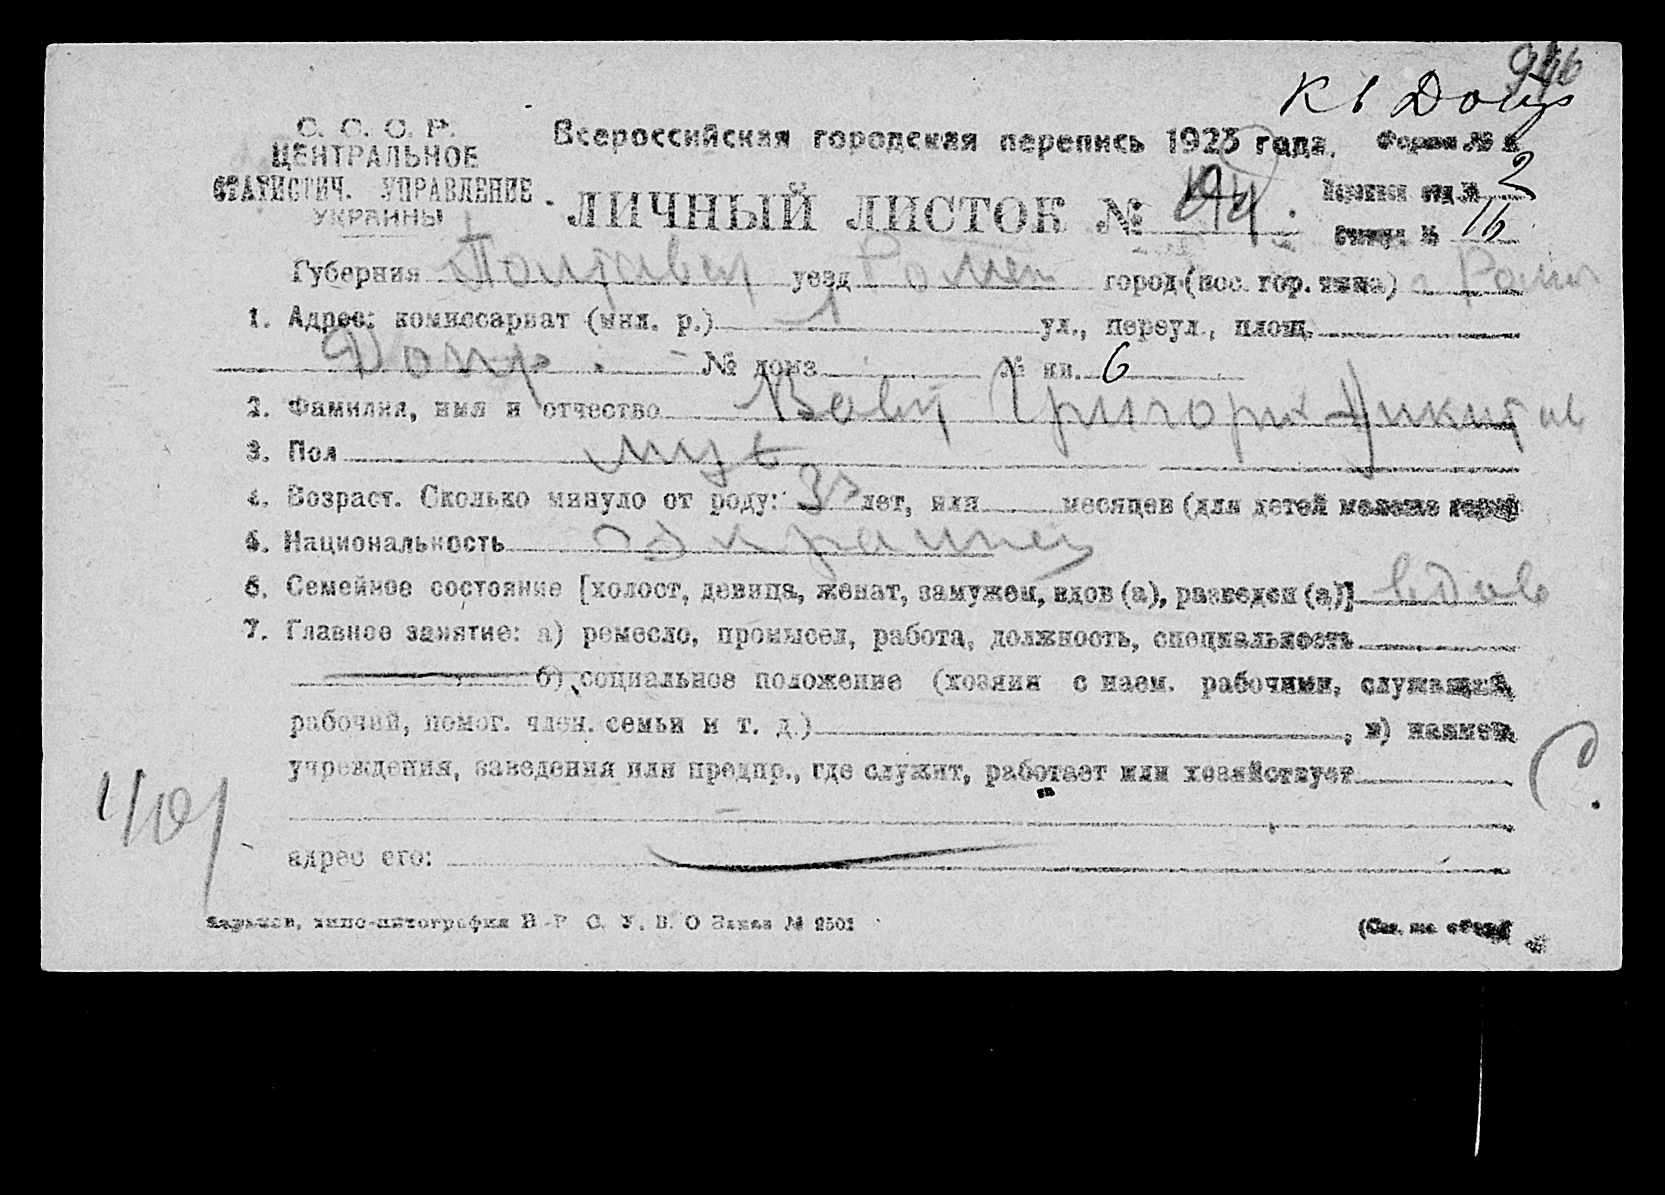 946
К 1 Допр
С. С. С. Р.
ЦЕНТРАЛЬНОЕ
СТАТИСТИЧ. УПРАВЛЕНИЕ
УКРАИНЫ
Всероссийская городская перепись 1923 года. Форма №
ЛИЧНЫЙ ЛИСТОК №
отд. № 2
№ 16
Губерния Полтавск уезд Ромен город (пос. гор. типа) г Ромен
1. Адрес: комиссариат (мил. р.) 1 ул., переул., площ.
Допр № дома № кв. 6
2. Фамилия, имя и отчество Григори Никитов
3. Пол муж
4. Возраст. Сколько минуло от роду: лет, или месяцев (для детей моложе года)
5. Национальность украинец
6. Семейное состояние [холост, девица, женат, замужем, вдов (а), разведен (а)] вдов
7. Главное занятие: а) ремесло, промысел, работа, должность, специальность
б) социальное положение (хозяин с наем. рабочими, служащий,
рабочий, помог. член. семьи и т. д.) , в) наимен.
учреждения, заведения или предпр., где служит, работает или хозяйствует
адрес его:
Харьков, типо-литография В.-Р. С. У. В. О Заказ № 2501
(См. на обор.)